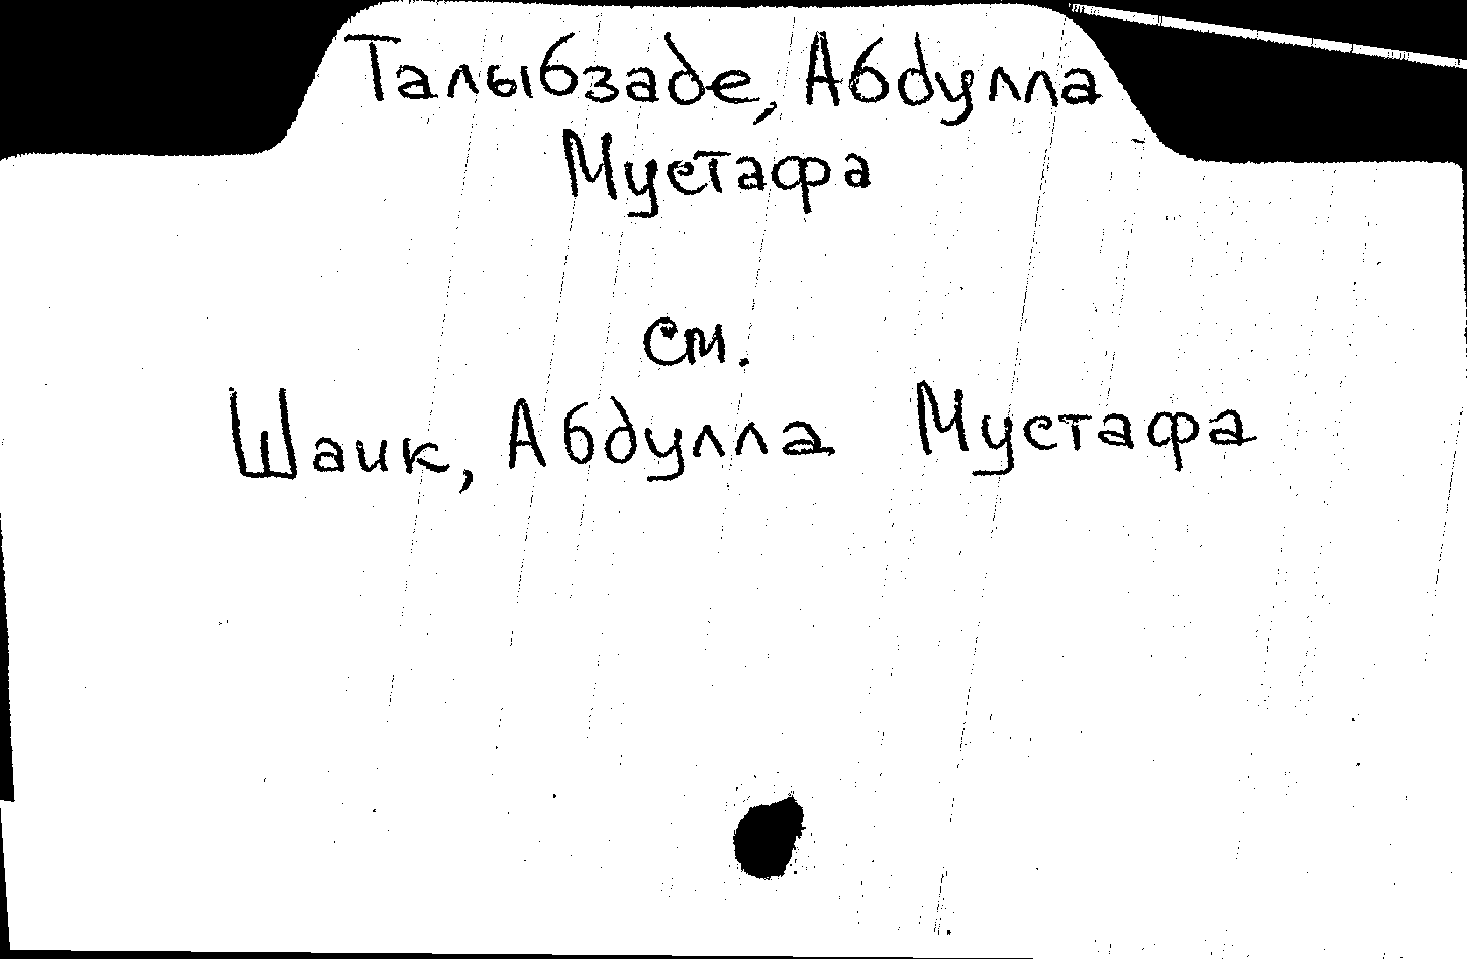 Талыбзаде, Абдулла
Мустафа
см.
Шаик, Абдулла Мустафа